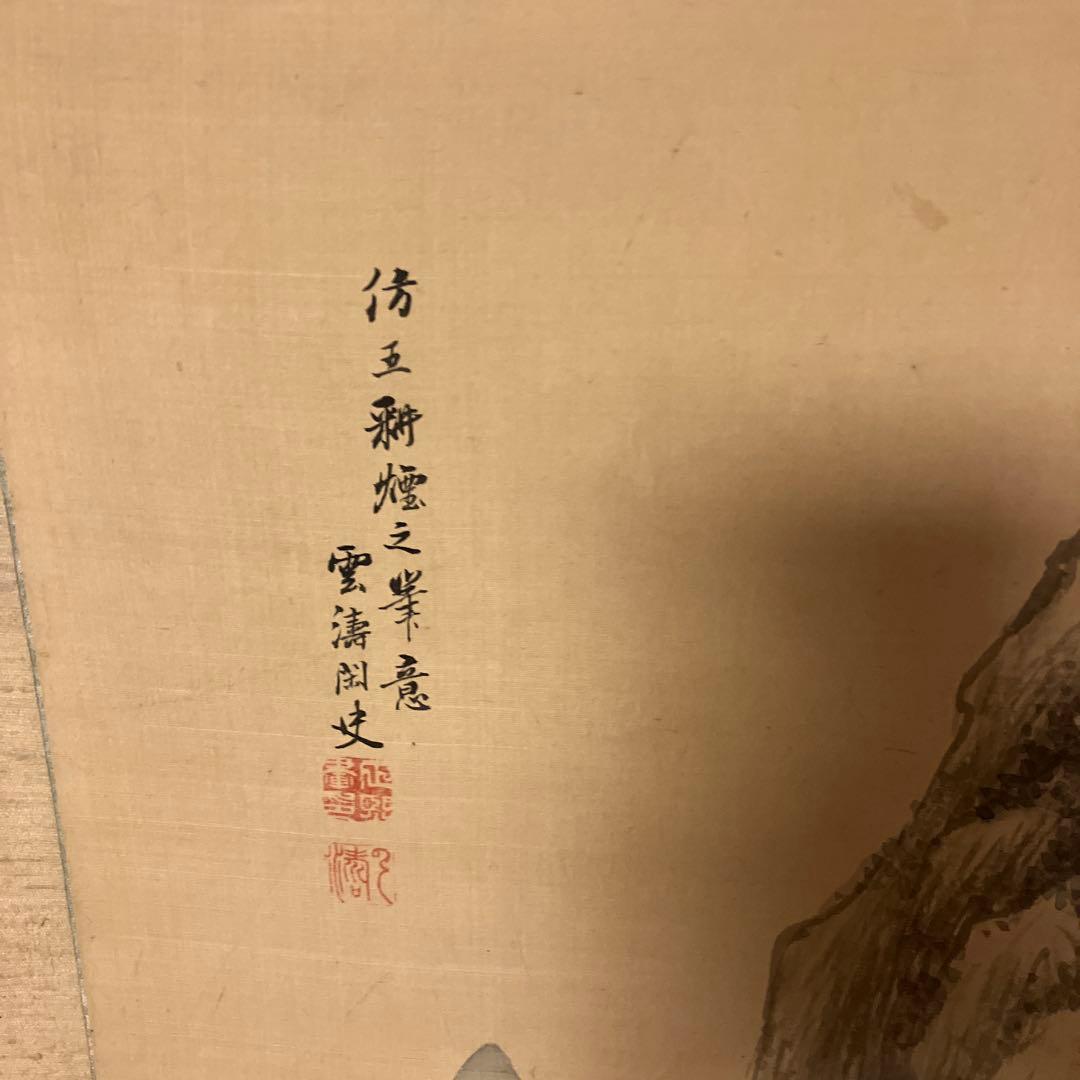 仿王耕煙之筆意
雲濤閑史